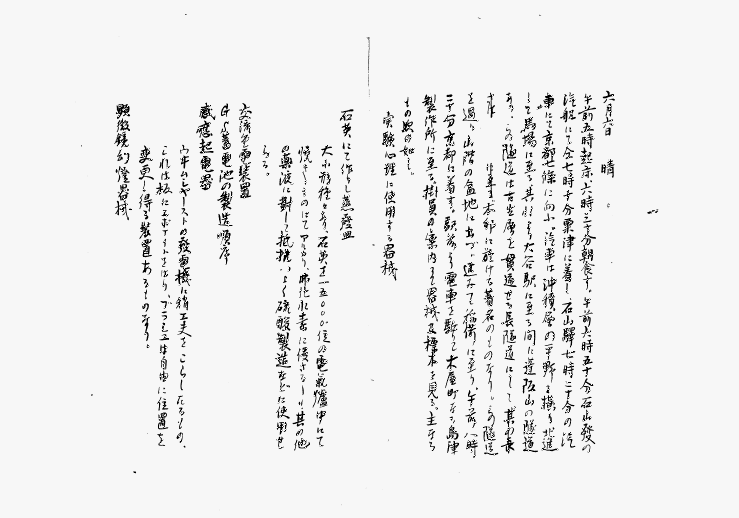 六月六日　晴。
午前五時起床、六時三十分朝食す。午前六時五十分石山発の
汽船にて仝七時十分粟津に着し、石山駅七時二十分の汽
車にて京都七條に向ふ。汽車は沖積層の平野を横り北進
して馬場に至る。其れより大谷駅に至る間に逢坂山の隧道
あり。この隧道は古生層を貫通せる長隧道にして其の長
本邦に於ける著名のものなり。この隧道
を過り山階の盆地に出づ。進みて稲荷に至り、午前八時
三十分京都に着す。駅前より電車を駆りて木屋町なる島津
製作所に至る。掛員の案内にて器械及標本を見る。主なる
もの次の如し。
実験心理に使用する器械
石英にて作りし蒸発皿
大小形種々あり、石英を一五〇〇〇位の電気爐中にて
焼きしものにてアルカリ、弗化水素に侵さるゝも其の他
の薬液に対して抵抗いよく硫酸製造などに使用せ
らる。
交流発電装置
GS蓄電池の製造順序
感應起電器
ウイムシャーストの発電機に稍工夫をこらしたるもの、
これは板にエボナイトをはり、ブラシュは自由に位置を
変更し得る装置あるものなり。
顕微鏡幻燈器械